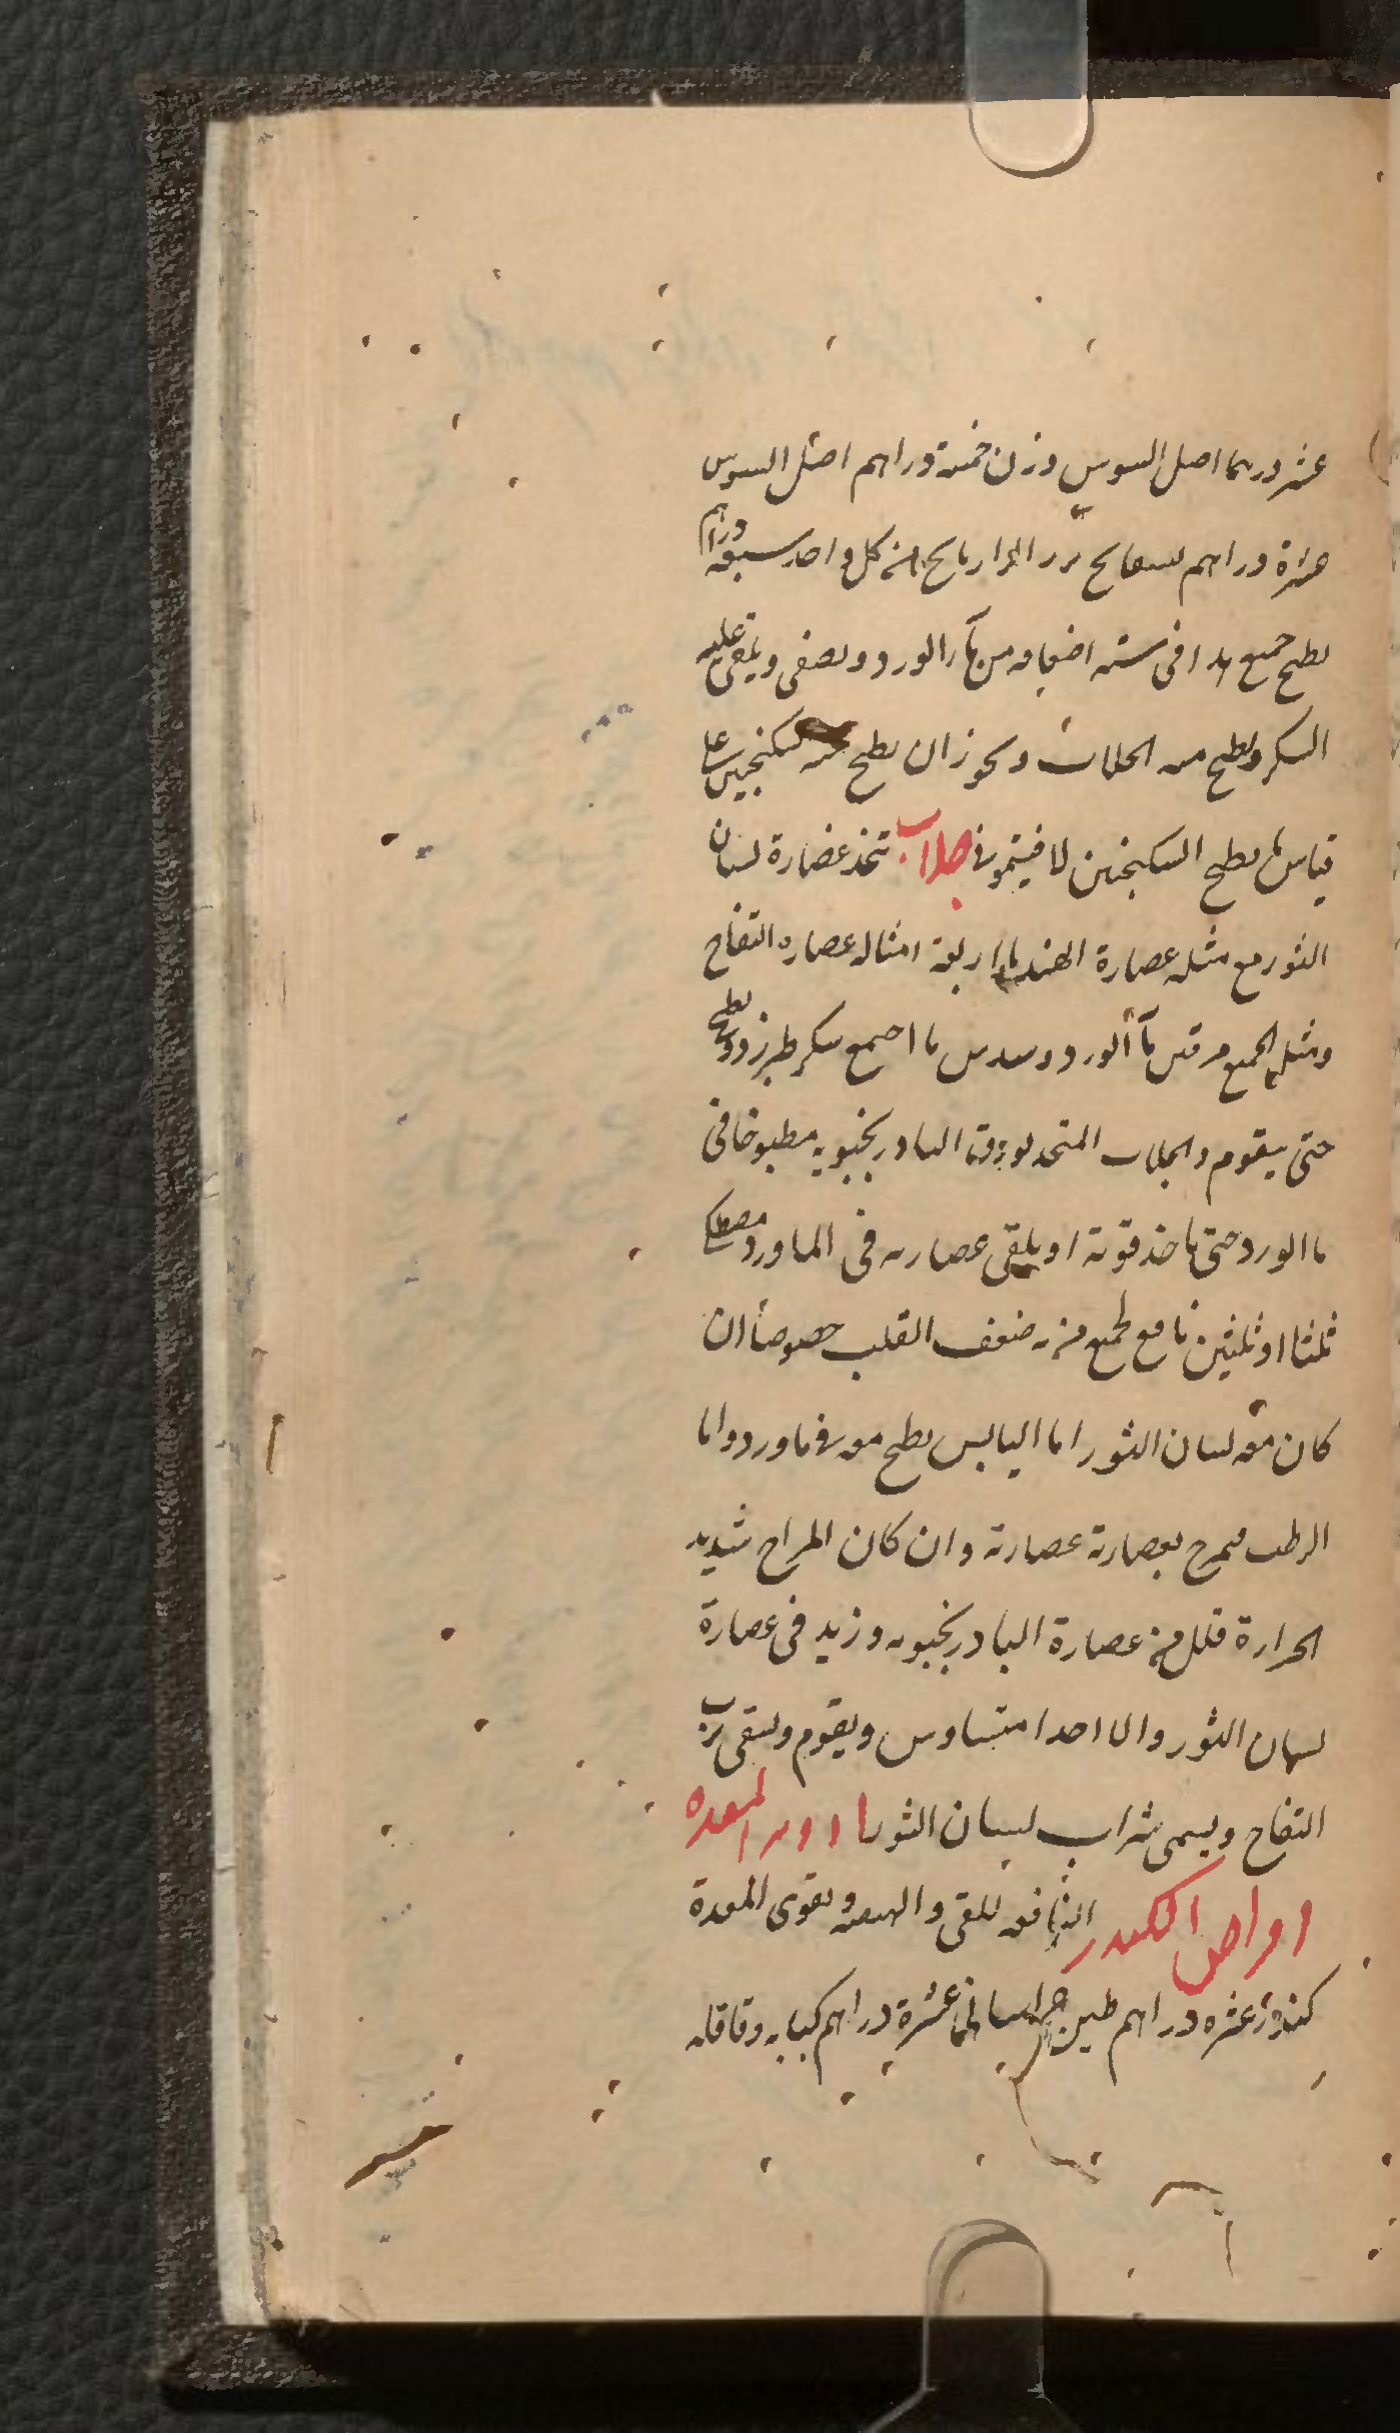 عشر درهما اصل السوس وزن خمسة دراهم اصل السوس
عشرة دراهم بسفايج بزر الرازيانج من كل واحد سبعة دراهم
يطبخ جميع هذا فى ستة اضعافه من ماء الورد ويصفى ويلقى عليه
السكر ويطبخ منه الجلاب ويجوز ان يطبخ منه سكنجبين على
قياس ما يطبخ السكنجبين الافيتمونى جلاب يتخذ عصارة لسان
الثور مع مثله عصارة الهندبا اربعة امثاله عصاره التفاح
ومثل الجميع مرتين ماء الورد وسدس ما اجمع سكر طبرزد ويطبخ
حتى يقوم والجلاب المتخذ بورق البادرنجبويه مطبوخا فى
ما الورد حتى ياخذ قوته او يلقى عصارته فى الماورد
ثلثا او ثلثين نافع لجميع من به ضعف القلب خصوصا ان
كان معه لسان الثور اما اليابس يطبخ معه فى ماورد واما
الرطب فيمزج بعصارته عصارته وان كان المزاج شديد
الحرارة قلل من عصارة البادرنجبويه وزيد فى عصارة
لسان الثور والا اخذا متساويين ويقوم ويسقى برب
التفاح ويسمى شراب لسان الثور ادوية المعده
اقراص الكندر النافعة للقى والهيضه ويقوى المعدة
كندر عشره دراهم طين خراسانى عشرة دراهم كبابه وقاقله